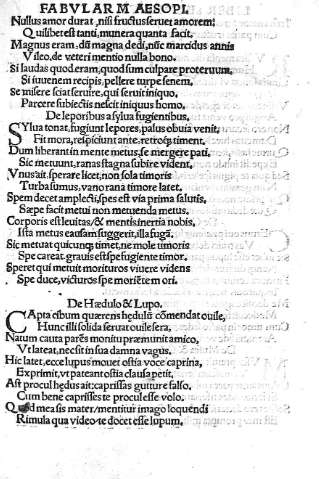 FABVLARVM AESOPI.
Nullus amor durat, nisi fructus seruet amorem:
Quilibet est tanti, munera quanta facit.
Magnus eram, dū magna dedi, nūc marcidus annis
Vileo, de veteri mentio nulla bono.
Si laudas quod eram, quod sum culpare proteruum,
Si iuuenem recipis, pellere turpe senem.
Se misere sciat seruire, qui seruit iniquo,
Parcere subiectis nescit iniquus homo.
De leporibus a sylua fugientibus.
SYlua tonat, fugiunt lepores, palus obuia venit,
Fit mora, respiciunt ante, retroq; timent.
Dum liberant in mente metus, se mergere pati.
Sic metuunt, ranas stagna subire vident.
Vnus ait, sperare licet, non sola timoris
Turba sumus, vano rana timore latet.
Spem decet amplecti, spes est via prima salutis,
Saepe facit metui non metuenda metus.
Corporis est leuitas, & mentis inertia nobis,
Ista metus causam suggerit, illa fugā.
Sic metuat quicunq; timet, ne mole timoris
Spe careat, grauis est spe fugiente timor.
Speret qui metuit morituros viuere videns
Spe duce, victuros spe moriētem ori.
De Hædulo & Lupo.
CApta cibum quærens hędulū cōmendat ouile,
Hunc illi solida seruat ouile sera.
Natum cauta parēs monitu præmunit amico,
Vt lateat, nec sit in sua damna vagus.
Hic latet, ecce lupus mouet ostia voce caprina,
Exprimit, vt pateant ostia clausa petit,
Ast procul hędus ait: caprissas gutture falso,
Cum bene caprisses te procul esse volo.
Quod mea sis mater, mentitur imago loquendi
Rimula qua video te docet esse lupum,